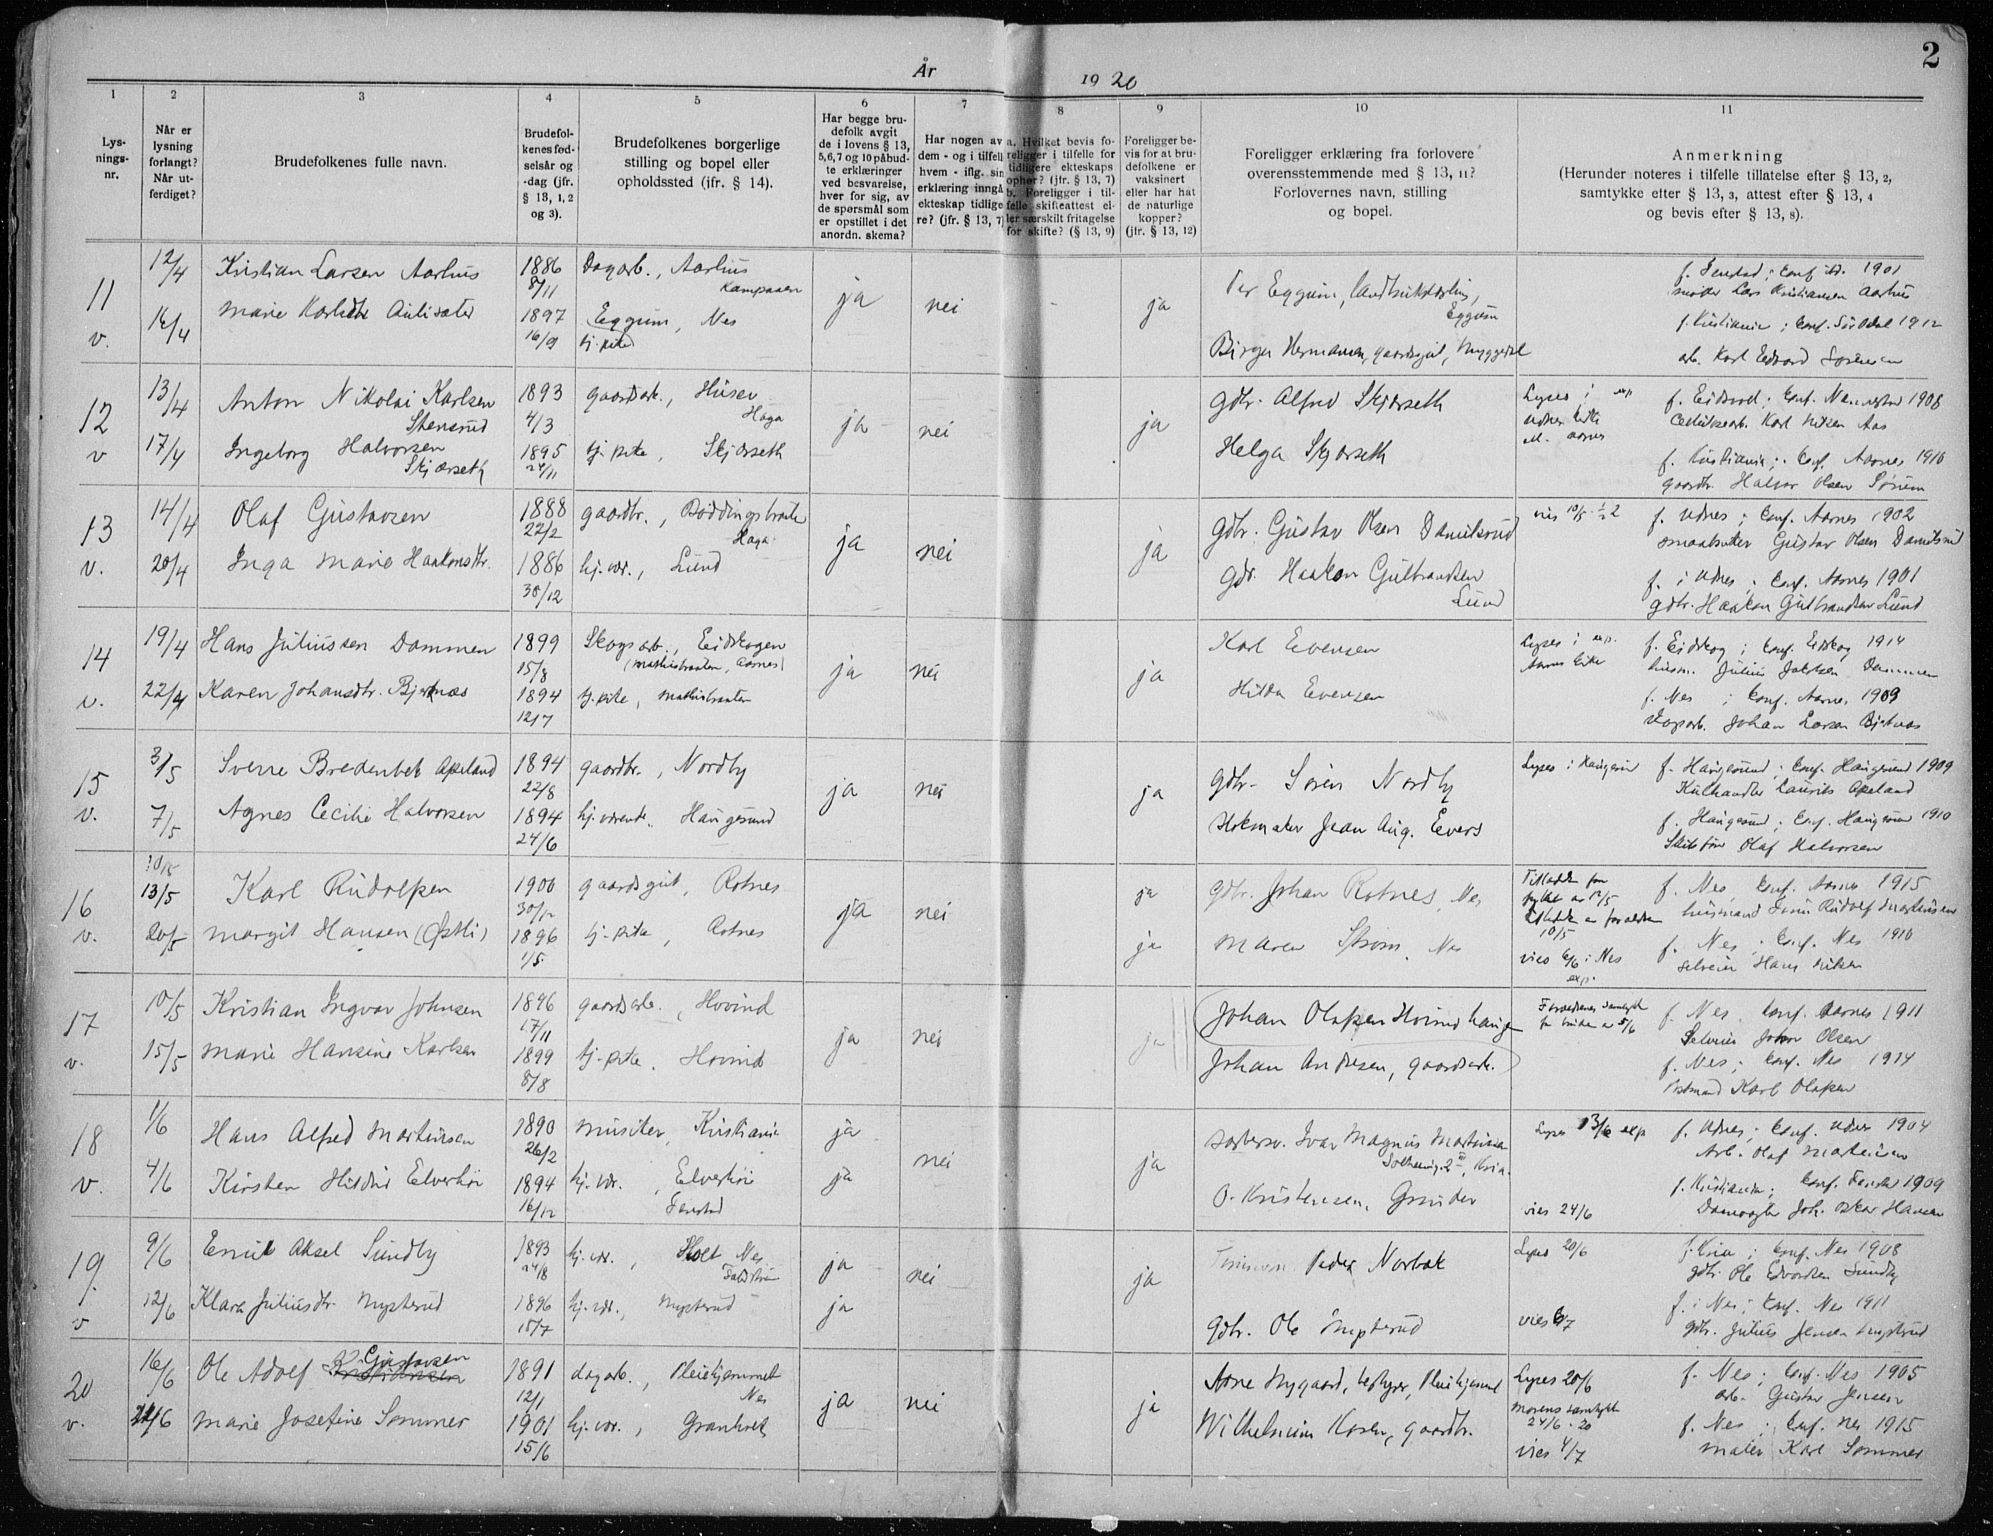 2
År 1920
1 2 3 4 5 6 7 8 9 10 11
Lys-
nings-
nr.
Når er
lysning
forlangt?
Når ut-
ferdiget?
Brudefolkenes fulle navn.
Brudefol-
kenes fød-
selsår og
-dag (jfr.
§ 13, 1, 2
og 3).
Brudefolkenes borgerlige
stilling og bopel eller
opholdssted (ifr. § 14).
Har begge bru-
defolk avgit
de i lovens § 13,
5,6,7 og 10 påbud-
te erklæringer
ved besvarelse,
hver for sig, av
de spørsmål som
er opstillet i det
anordn. skema?
Har nogen av
dem - og i tilfell
hvem - iflg. sin
erklæring inngå
ekteskap tidlige
re? (jfr. § 13, 7)
a. Hvilket bevis fo-
religger i tilfelle for
tidligere ekteskaps
ophør? (jfr. § 13, 7)
b. Foreligger i til-
felle skifteattest el-
ler særskilt fritagelse
for skifte? (§ 13, 9)
Foreligger be-
vis for at bru-
defolkene er
vaksinert
eller har hat
de naturlige
kopper?
(jfr. § 13, 12)
Foreligger erklæring fra forlovere
overensstemmende med § 13, 11?
Forlovernes navn, stilling
og bopel.
Anmerkning
(Herunder noteres i tilfelle tillatelse efter § 13, 2,
samtykke efter § 13, 3, attest efter § 13, 4
og bevis efter § 13, 8).
11 12/4 Kristian Larsen Aarhus 1886 Dagarb., Aarhus
8/11 Kampaaen ja nei - ja Per Eggum, landbrukskærling, Eggum f. Fenstad; Conf. 1901
Lars Kristiansen Aarhus
v. 16/4 Marie 1897 Eggum, Nes
16/9 tj.pike Birger Hermansen, gaardsgut, f. Kristiania; Conf. 1912
arb. Karl Edvard Sørensen
12 13/4 Anton Nikolai Karlsen
Stensrud 1893 gaardsarb., Huser
4/3 Haga ja nei ja gdbr. Alfred Skjærseth Lyses i
Udnes kirke f. Eidsvol; Conf. 1908
Karl Aas
v 17/4 Ingeborg Halvorsen
Skjærseth 1895 tj. pike, Skjærseth
24/11 Helga Skjærseth f. Kristiania; Conf. Aarnes 1910
gaardbr. Halvor Olsen Sørum
13 14/4 Olaf Gustavsen 1888 gaardbr.,
22/2 Haga ja nei ja gdbr. Gustav Olsen Danielsrud vies f. Udnes; Conf. Aarnes 1902
Gustav Olsen Danielsrud
v. 20/4 Inga Marie Haakonsdtr. 1886 hj.vær., Lund
30/12 gdr. Haakon Gulbrandsen
Lund f. i Udnes; Conf. Aarnes 1901
gdbr. Haakon Gulbrandsen Lund
14 19/4 Hans Juliussen Dammen 1899 Skogsarb., Eidskogen
15/8 (Mathisbraaten, Aarnes) ja nei ja Karl Evensen Lyses i
Aarnes kirke f. Eidskog; Conf. Eidskog 1914
husm. Julius Dammen
v. 22/4 Karen Johansdtr. Bjerknæs 1894 tj.pike, Mathisbraaten
12/7 Hilda Evensen f. Nes; Conf. Aarnes 1909
skogarb. Johan Larsen
15 3/5 Sverre Bredenbek Apeland 1894 gaardbr., Nordby
22/8 ja nei ja gdbr. Søren Nordby Lyses i f. Haugesund; Conf. Haugesund 1909
Kulhandler Laurits Apeland
v. 7/5 Agnes Cecilie Halvorsen 1894 hj.værende, Haugesund
24/6 Jean Aug. Evers f. Haugesund; Conf. Haugesund 1910
Olaf Halvorsen
10/5
16 13/5 Karl Rudolfsen 1900 gaardsgut, Rotnes
30/12 ja nei ja gdbr. Johan Rotnes, Nes f. Nes, Conf. Aarnes 1915
husmand Rudolf
v. 20/5 Margit Hansen (Østli) 1896 tj. pike, Rotnes
1/5 ja Maren Strøm, Nes 10/5
vies 6/6 i Nes f. Nes; Conf. Nes 1910
selveier Hans
17 10/5 Kristian Ingvar Johnsen 1896 gaardsarb., Hovind
17/11 ja nei ja Johan Olafsen samtykke
for 5/6 f. Nes, Conf. Aarnes 1911
Selveier Johan Olsen
v. 15/5 Marie Hansine Karlsen 1899 tj.pike, Hovind
8/8 Johan Andresen, gaardsarb. f. Nes; Conf. Nes 1914
Karl Olafsen
18 1/6 Hans Alfred Martinsen 1890 musiker, Kristiania
26/2 ja nei ja Ivar Magnus Martinsen Lyses 13/6 f. Udnes; Conf. Udnes 1904
Arb. Olaf Martinsen
v. 4/6 Kirsten Hildur Elverhöi 1894 hj.vær., Elverhöi
16/12 Fenstad ja O. Kristensen, Grinder vies 24/6 f. Kristiania; Conf. Fenstad 1909
Joh. Oskar Hansen
19. 9/6 Emil Aksel Sundby 1893 hj.vær., Nes
24/8 ja nei ja Peder Norbak Lyses 20/6 f. Kria; Conf. Nes 1908
gdbr. Ole Edvardsen Sundby
v 12/6 Klara Juliusdtr. Mysterud 1896 hj.vær., Mysterud
15/7 ja gdbr. Ole vies 6/7 f. i Nes; Conf. Nes 1911
gdbr. Julius Jensen Mysterud
20 16/6 Ole Adolf Gustavsen 1891 dagarb., Pleiehjemmet
12/1 Nes ja nei ja Arne Nygaard, bestyrer, Pleiehjemmet Lyses 20/6 f. Nes; Conf. Nes 1905
arb. Gustav Jensen
v. 24/6 Marie Josefine Sommer 1901 hj.vær., Granholt
15/6 Wilhelm Hosen, gaardbr. Morens samtykke
24/6 - 20
vies 4/7 f. Nes; Conf. Nes 1915
maler Karl Sommer